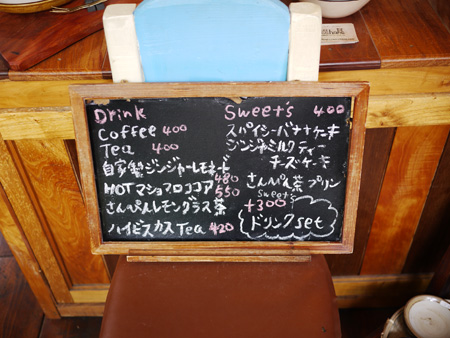 Drink
Coffee 400
Tea 400
自家製ジンジャーレモネード 480
HOTマシュマロココア 550
さんぴんレモングラス茶
ハイビスカスTea 420
Sweet's 400
スパイシーバナナケーキ
ジンジャーミルクティー
チーズケーキ
さんぴん茶プリン
sweet's
+300
ドリンクset